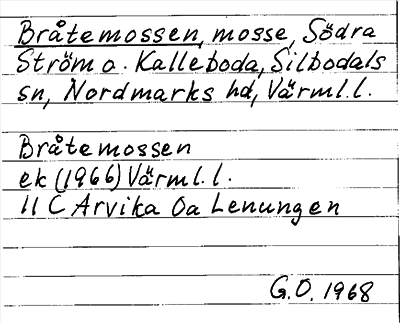 Bråtemossen, mosse, Södra
Ström o. Kalleboda, Silbodals
sn, Nordmarks hd, Värml.l.
Bråtemossen
ek (1966) Värml.l.
11 C Arvika Oa Lenungen
G.O. 1968